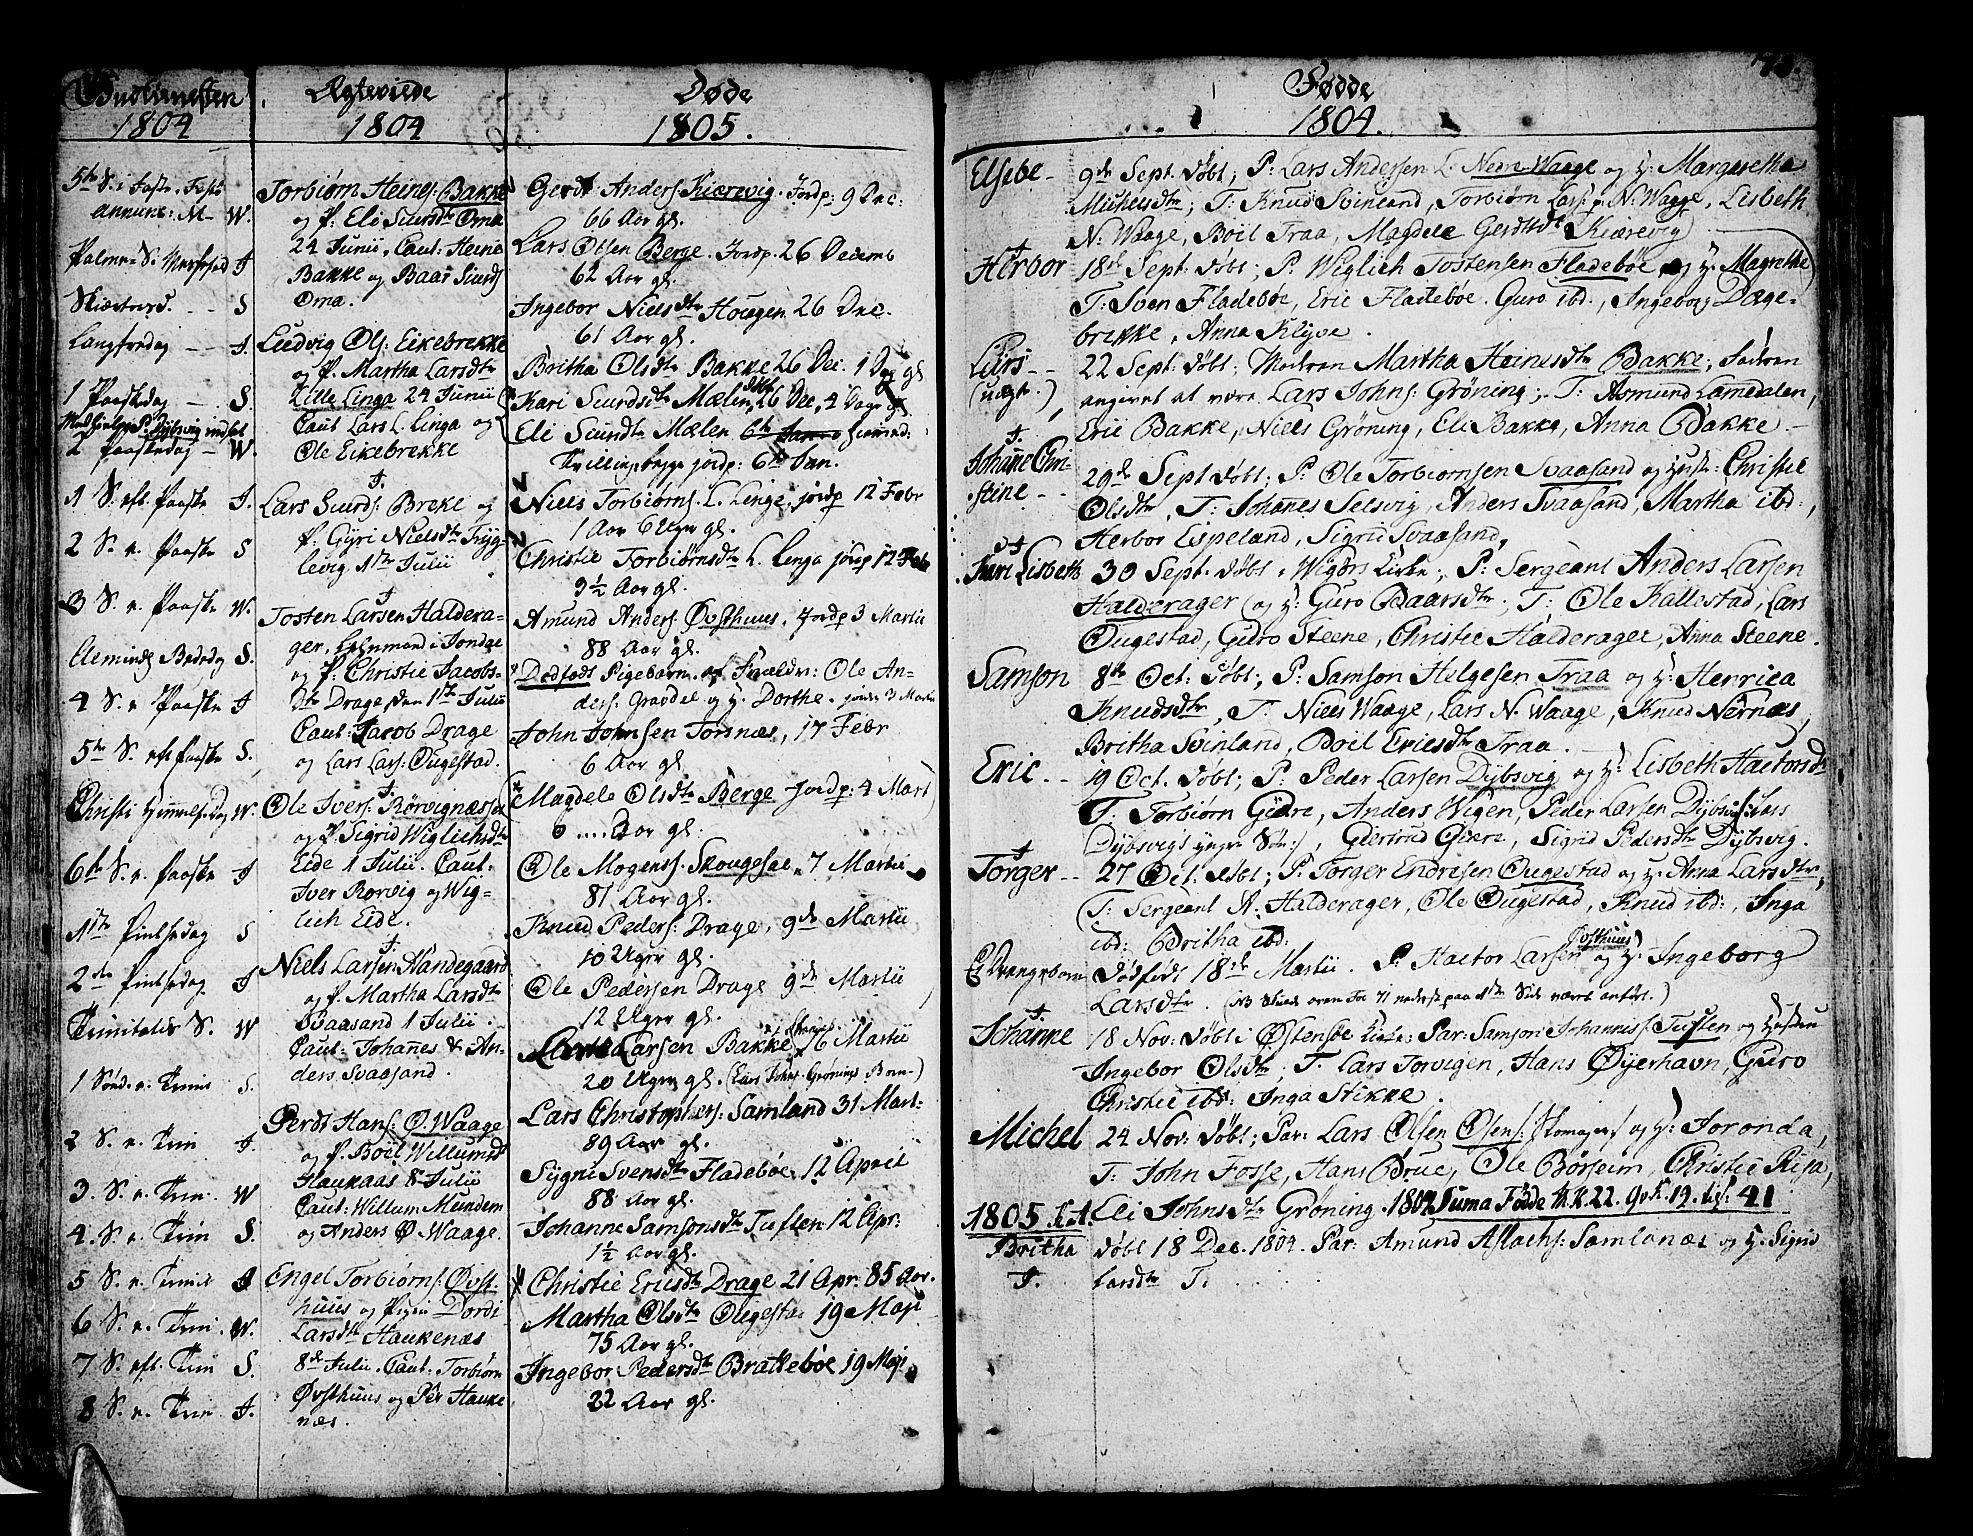 Gudtienesten
1804
5te S. i Faste. Festo
annunc: M - W.
Palme-S. Nersesed J
Skiertorsd. - - S
Langfredag - - J.
1 Paaskedag - S.
2 Paaskedag - W.
1 S. eft. Paaske J.
2 S. e. Paaske S
3 S. e. Paaske W.
Almind. Bededag S.
4 S. e Paaske J
5te S. eft Paaske S.
Christi Himmelf. Dag W.
6te S. e. Paaske J
1ste Pintsedag S
2den Pintsedag J
Trinitatis S. W
1 Sønd. e. Trinit S.
2 S. e. Trin J.
3. S. e. Trin. W
4. S. e. Trin S.
5 S. e. Trinit J
6 S. e. Trin. W.
7 S. eft. Trin S.
8 S. e. Trin J.
Ægteviede
1804
Torbiørn Heines: Bakke
og P. Eli Siursdtr Oma
24 Junii, Caut: Heine
Bakke og Baar Siurds
Oma.
Ludvig Ols: Eikebrekke
og P. Martha Larsdtr
Lille Linga 24 Junii
Caut Lars L. Linga og
Ole Eikebrekke
Lars Siurds: Breke og
P. Gyri Nielsdtr Tryg-
levig 1ste Julii
Tosten Larsen Haldera-
ger, Lehnmand i Jondal
og P. Christie Jacobs-
dtr Drage, den 1ste Julii
Caut: Jacob Drage
og Lars Lars: Ougestad.
Ole Ivers: Rørvignæs
og P. Sigrid Wiglichsdtr
Eide 1 Julii. Caut:
Iver Rørvig og Wig-
lich Eide.
Niels Larsen Handegaard
og P. Martha Larsdtr
Svaasand 1 Julii.
Caut: Johannes & An-
ders Svaasand.
Gerdt Hans: Ø. Waage
og P. Boel Willumsd
Haukaas 8 Julii
Caut: Willum Mundem
og Anders Ø Waage.
Engel Torbiørns: Øvst-
huus og Pigen Dordi
Larsdtr Haukenæs
8de Julii. Caut: Torbiørn
Øvsthuus og Per Hauke
næs.
Døde
1805.
Gerdt Anders: Kierevig. Jordp: 9 Dec:
66 Aar gl.
Lars Olsen Berge. Jordp. 26 Decemb
62 Aar gl.
Ingebor Nielsdtr Hougen 26 Dec.
61 Aar gl.
Britha Olsdtr Bakke 26 Dec. 1 Dag gl
Kari Siurdsdtr Mælen 26 Dec, 4 Dage gl
Eli Siursdtr Mælen
Tvillinger begge jordp: 6te Jan.
Niels Torbiørns: L. Linge, jordp 12 Febr
1 Aar 6 Uger gl.
Christie Torbiørnsdtr L. Linga jordp 12 Febr
3½ Aar gl.
Amund Anders: Øvsthuus, Jordp 3 Martii
88 Aar gl.
Dødfødt Pigebarn af Foreldre: Ole An-
ders: Graddal og H. Dorthe. jordet 3 Martii
John Johnsen Torsnæs, 17 Febr
6 Aar gl.
Magdele Olsdtr Berge Jordp: 4 Mart
0 .... 3 Aar gl.
Ole Mogenss: Skougesæl 7 Martii
81 Aar gl.
Knud Peders: Drage, 9de Martii
10 Uger gl.
Ole Pedersen Drage 9de Martii
12 Uger gl.
Larsen Bakke 16 Martii
20 Uger gl. (Lars Johns: Grønings Barn)
Lars Christophers: Samland 31 Mart.
89 Aar gl.
Sygni Svensdtr Fladebøe. 12 April
88 Aar gl.
Johanne Samsonsdtr Tuften 12 Apr:
1½ Aar gl.
Christie Ericsdtr Drage 21 Apr: 85 Aar.
Martha Olsdtr Ougestad 19 Maji
75 Aar gl.
Ingebor Pedersdtr Brattebøe 19 Maji
22 Aar gl.
73.
Fødde
1804.
Elsebe - 9de Sept. døbt; P: Lars Andersen L. Nedre Waage og H: Margaretha
Michelsdtr; T: Knud Svinland, Torbiørn Lars: N. Waage, Lisbeth
N. Waage, Boil Traa, Magdele Gerdtsdtr Kierevig
Herbor 18de Sept. døbt; P. Wiglich Tostensen Fladebøe og H. Magrethe
T: Sven Fladebøe, Eric Fladebøe. Guro ibd., Ingeborg Dage-
brekke, Anna Klyve.
Lars - 22 Sept. døbt; Modren Martha Heinesdtr Bakke; Fadren
(uægte.) angivet at være Lars Johns: Grøning; T: Asmund Lamedalen,
Eric Bakke, Niels Grøning, Eli Bakke, Anna Bakke -
Johanne Chri- 29de Sept døbt; P. Ole Torbiørnsen Svaasand og Hust: Christie
stine - - Olsdtr, T: Johannes Selsvig, Anders Svaasand, Martha ibd:,
Herbor Espeland, Sigrid Svaasand,
Kari Lisbeth 30 Sept: døbt i Wigørs Kirke; P: Sergeant Anders Larsen
Halderager og H: Guro Baarsdtr; T: Ole Kallestad, Lars
Ougestad, Guro Steene, Christie Halderager, Anna Steene.
Samson 8de Oct: døbt; P: Samson Helgesen Traa og H: Henrica
Knudsdtr, T: Niels Waage, Lars N. Waage, Knud Nernæs,
Britha Svinland, Boil Ericsdtr Traa.
Eric. - - 19 Oct. døbt; P: Peder Larsen Dybsvig og H: Lisbeth Hactorsd
T: Torbiørn Giære, Anders Wigen, Peder Larsen Dybsvig: Lars
Dybsvigs yngre Søn:/, Giertrud Giære, Sigrid Pedersdtr Dybsvig.
Torger - - 27 Oct: døbt; P: Torger Endresen Ougestad og H: Anna Larsdtr,
T: Sergeant A: Halderager, Ole Ougestad, Knud ibd:, Inga
ibd: Britha ibd:
Et Drengebarn Dødfødt 18de Martii. P: Hactor Larsen Øvsthuus og H: Ingeborg
Larsdtr.
Johanne 18 Nov: døbt i Østensøe Kirke; Par: Samson Johanness: Tuften og Hustrue
Ingebor Olsdtr; T. Lars Torvigen, Hans Øyerhavn, Guro
Christie ibd: Inga Stikke.
Michel 24 Nov: døbt; Par: Lars Olsen Olsen /:Skomager:/ og H: Joronda,
T: John Fosse, Hans Brue, Ole Børsem, Christie Risa,
Eli Johnsdtr Grøning. 1804 Suma Føde M.K. 22. Qv.K. 19. tils: 41
1805
Britha døbt 18 Dec. 1804. Par: Amund Aslachs: Samlanæs og H. Sigrid
Larsdtr T: